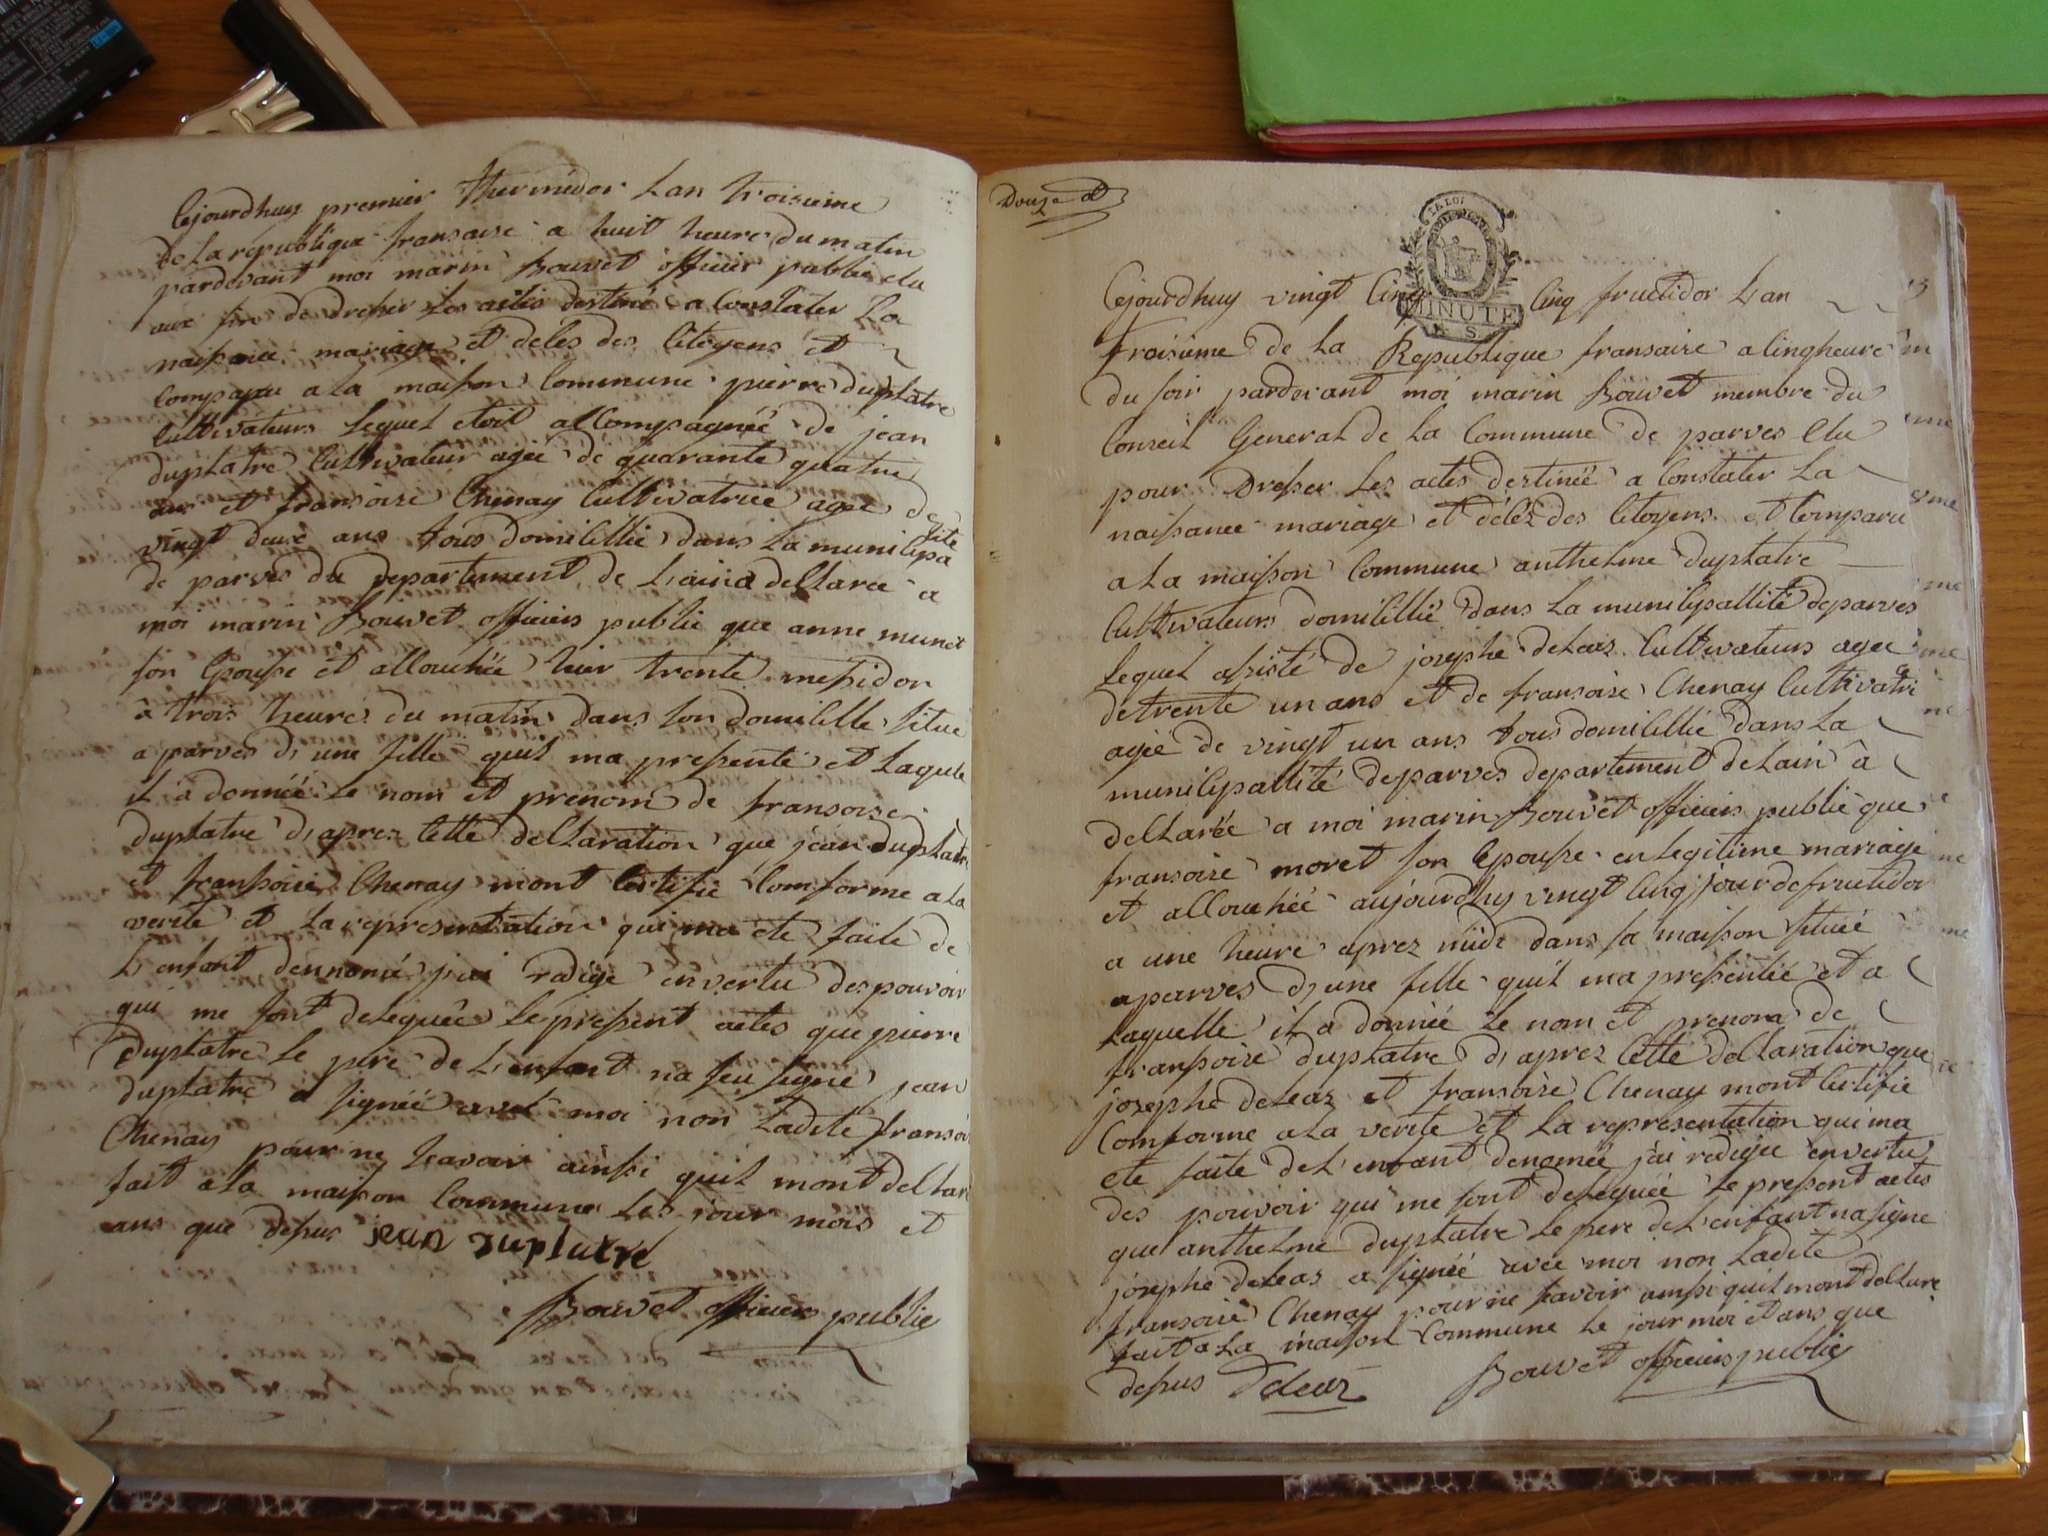 Cejourdhuy premier thermidor Lan troisieme
de La republique fransaise a huit heure du matin
pardevant moi marin Bouvet officier public elu
aux fin de dresser Les actes destiné a Constater La
naissance mariage et deles des Citoyens et
Comparu a la maison Commune pierre duplatre
Cultivateurs Lequel etoit accompagnée de jean
duplatre Cultivateur agée de quarante quatre
ans et fransoise Chenay Cultivatrice agée de
vingt deux ans tous domicillié dans La municipa
lité
de parves du departement de L'ain a declaree a
moi marin Bouvet officiers public que anne munet
son Epouse et accouchée hier trente messidor
à trois heures du matin dans son domicille situé
a parves d'une fille quil ma pressenté et Laquele
il a donnéé Le nom et prenom de fransoise
duplatre d'aprez Cette declaration que jean duplatre
et franssoise Chenay mont Certifié Comforme a La
verité et La representation qui ma ete faite de
L'enfant dennomé j'ai redigé en vertu des pouvoir
qui me sont deleguée Le pressent actes que pierre
duplatre Le pere de L'enfant na seu signé jean
duplatre a signéé avec moi non Ladite fransoi
Chenay pour ne Savoir ainssi quil mont declar
fait a La maison Commune Les jour mois et
ans que dessus jean duplatre
Bouvet officiers public
Douze
LA LOI
MINUTE
S.
Cejourdhuy vingt Cinq Cinq fructidor Lan
troisieme de La Republique fransaise a Cinq heure
du soir pardevant moi marin Bouvet membre du
Conseil General de La Commune de parves Elu
pour Dresser Les actes destinéé a Constater La
naissance mariage et délés des Citoyens et Comparu
a La maison Commune anthelme duplatre
Cultivateurs domicillié dans La municipallité de parves
Lequel assisté de josephe deleaz Cultivateurs agée
de trente un ans et de fransoise Chenay Cultivatri
ce
agée de vingt un ans tous domicillié dans La
municipallité de parves departement de Lain à
declarée a moi marin Bouvet officiers public que
fransoise moret son Epouse en legitime mariage
et accouchéé aujourdhuy vingt Cinq jour de fructidor
a une heure aprez midi dans sa maison située
a parves d'une fille quil ma pressentée et a
Laquelle il a donnée Le nom et prenom de
franssoise duplatre d'aprez Cette declaration que
josephe deleaz et fransoise Chenay mont Certifié
Comforme a La verite et La representation qui ma
ete faite de L'enfant denomée j'ai redigée en vertu
des pouvoir qui me sont deleguée Le pressent actes
que anthelme duplatre Le pere de L'enfant na signe
josephe deleaz a signéé avec moi non Ladite
fransoise Chenay pour ne savoir ainssi quil mont declaré
fait a La maison Commune Le jour moi et ans que
dessus Deleaz Bouvet officiers public